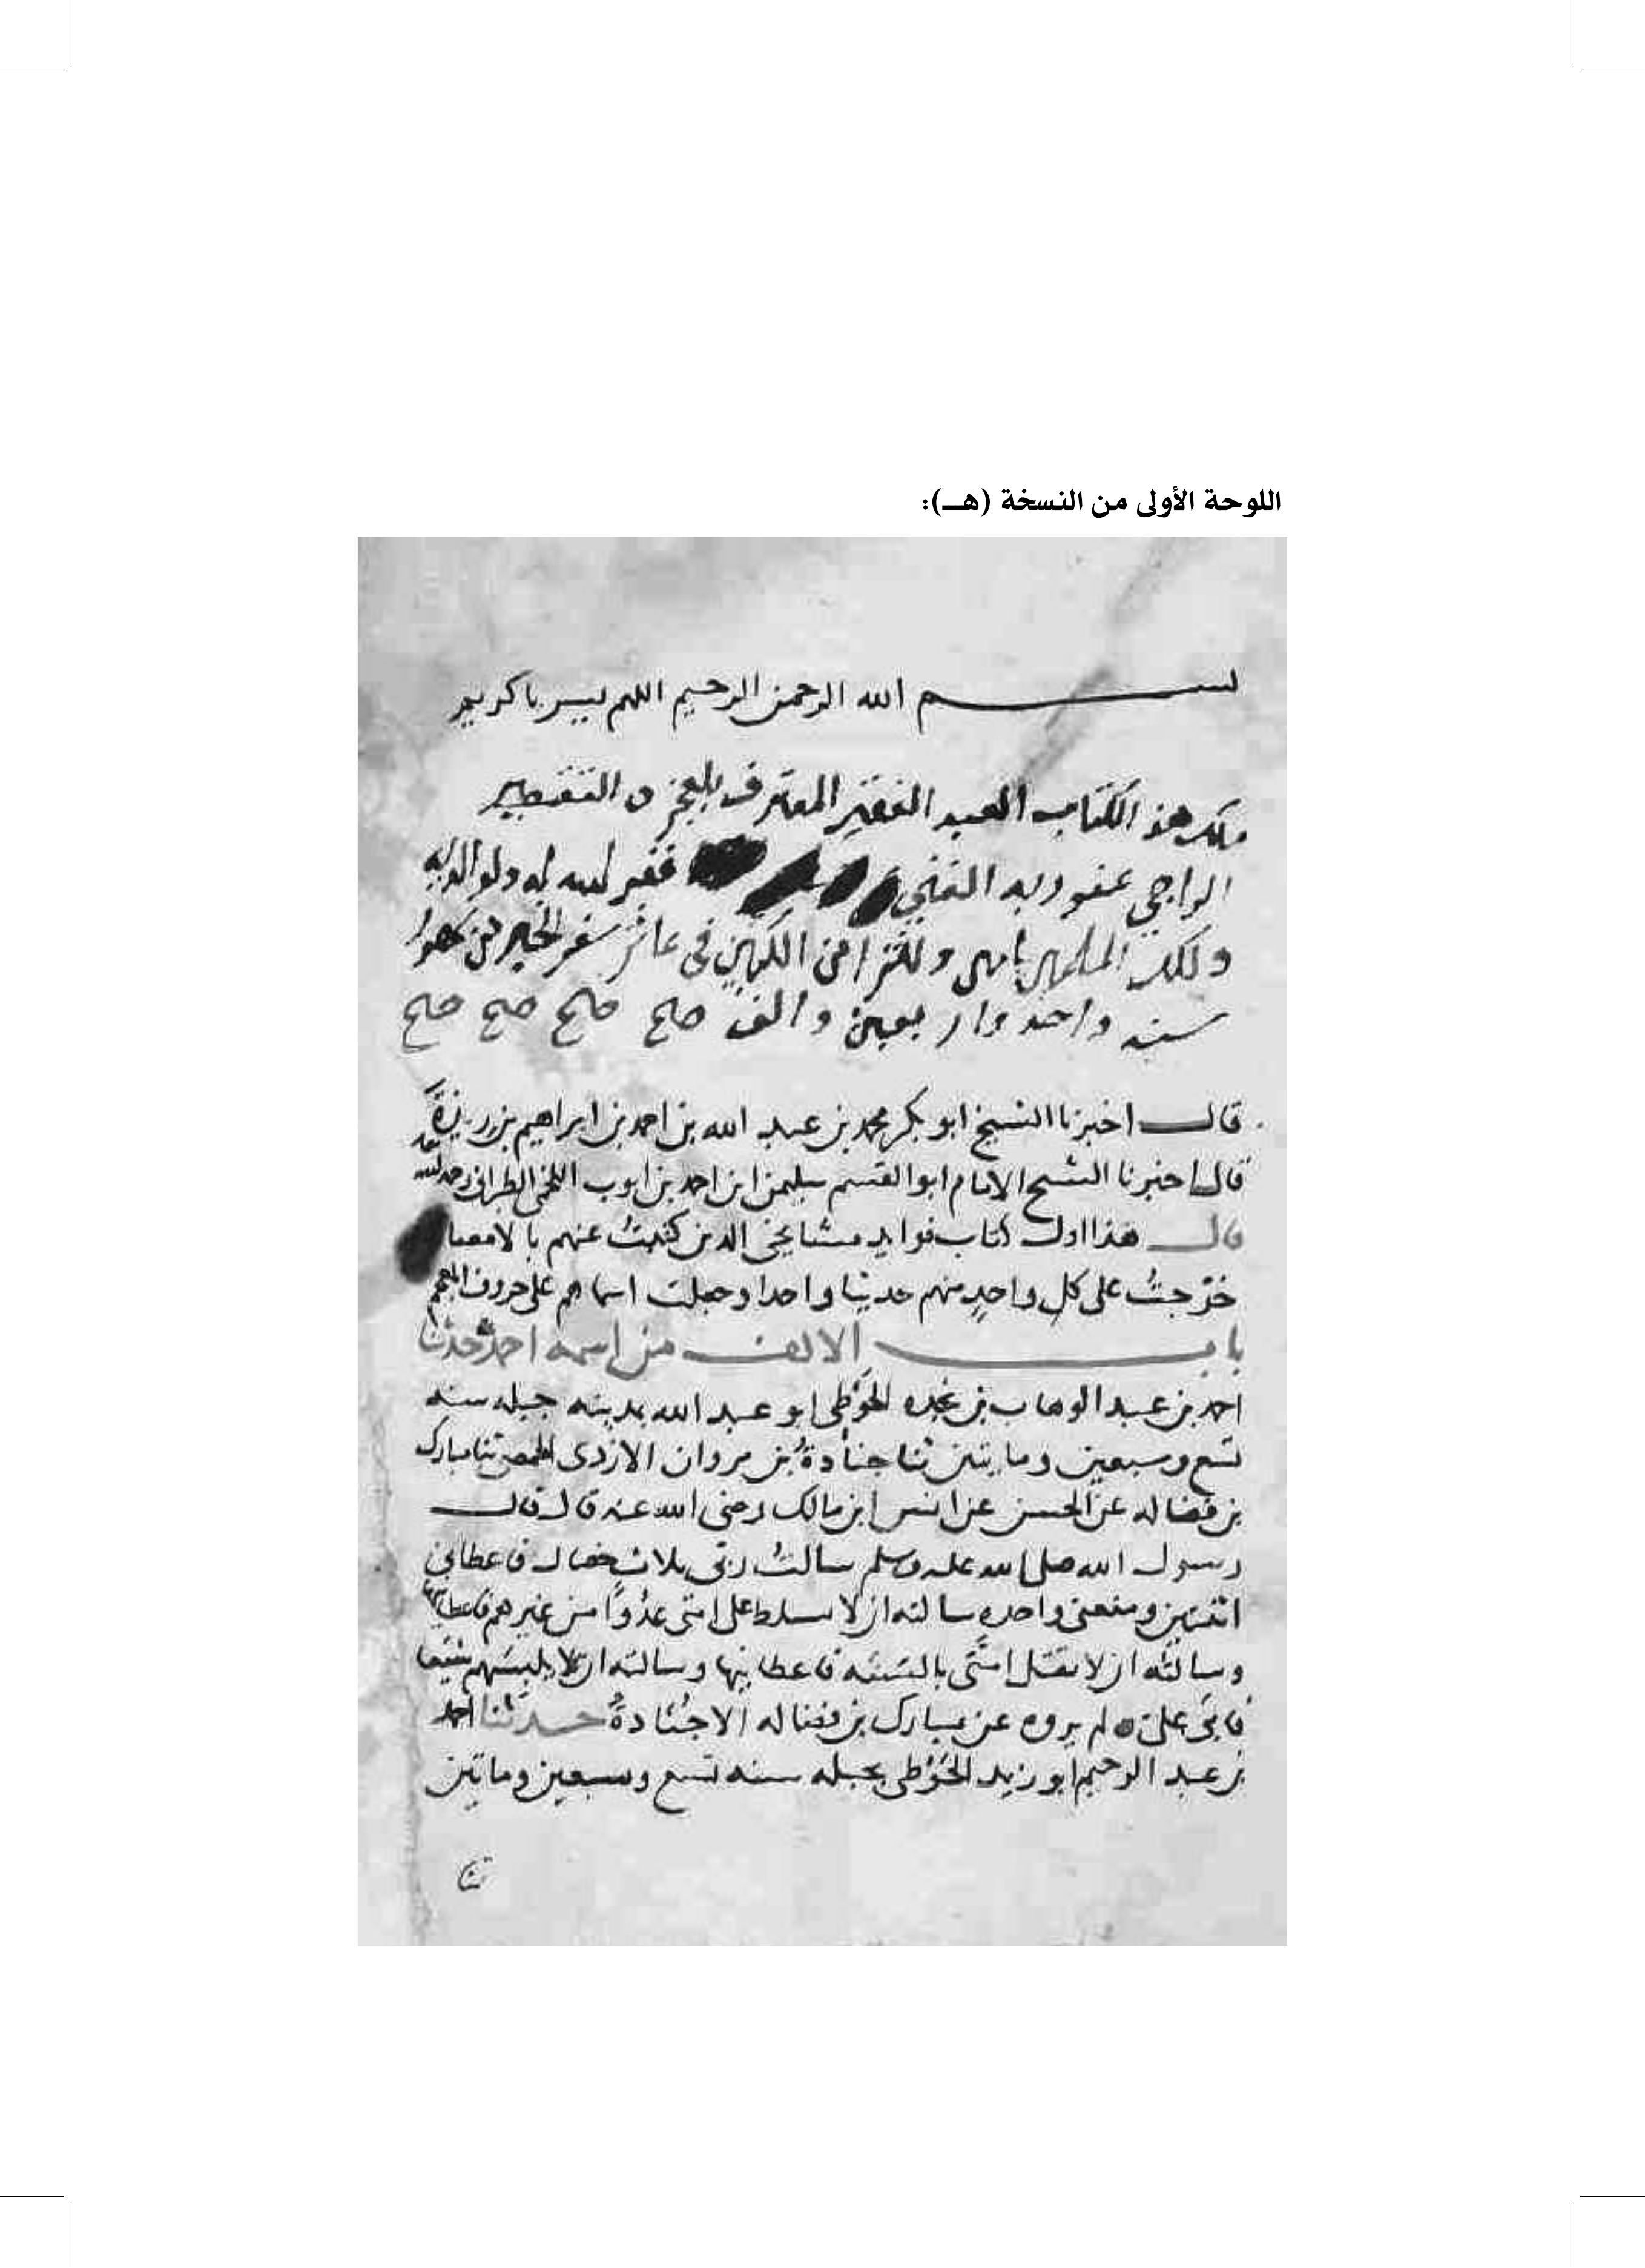 اللوحة الأولى من النسخة (هـ):
بسم الله الرحمن الرحيم اللهم يسر يا كريم
ملك هذ الكتاب العبد الفقير المعترف بالعجز و التقصير
الراجي عفو ربه الغني فقير لله له ولوالديه
ولكل المسلمين في عاشر
سنه واحد واربعين والف صح صح صح صح
قال اخبرنا الشيخ ابو بكر محمد بن عبد الله بن احمد بن ابراهيم بن ريذة
قال اخبرنا الشيخ الامام ابو القسم سليمن ابن احمد بن ايوب اللخمى الطبرانى رحمه الله
قال هذا اول كتاب فوايد مشايخى الذين كتبتُ عنهم بالامصار
خرّجتُ على كل واحدٍ منهم حديثا واحدا وجعلت اسماهم على حروف المعجم
باب الالف من اسمه احمد حدثنا
احمد بن عبد الوهاب بن نجده الحَوْطى ابو عبد الله بمدينه جبله سنه
تسع وسبعين ومايتين ثنا جنادةُ بن مروان الازدى الحمصى ثنا مبارك
بن فضاله عن الحسن عن انس ابن مالك رضى الله عنه قال قال
رسول الله صلى الله عليه وسلم سالتُ ربّى ثلاث خصال فاعطانى
اثنتين ومنعنى واحده سالته ان لا يسلط على امتى عدُوًا من غيرهم فاعطانيها
وسالته ان لا يقتل امتّى بالسَنَه فاعطانيها وسالته ان لا يلبسَهم شيَعا
فابَى علىّ ه لم يروه عن مبارك بن فضاله الا جُنَادةُ حدثنا احمد
بن عبد الرحيم ابو زيد الحَوْطى بجبله سنه تسع وسبعين ومايتين
ثنا